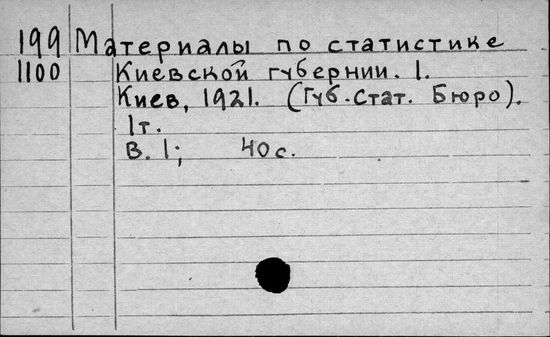 199 Материалы по статистике
1100 Киевской губернии. 1.
Киев, 1921. (Губ. Стат. Бюро).
1т.
В. 1; 40 с.